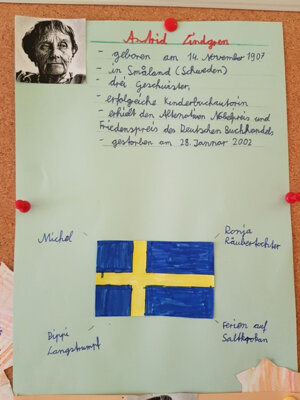 Astrid Lindgren
- geboren am 14. November 1907
- in Småland (Schweden)
- drei Geschwister
- erfolgreiche Kinderbuchautorin
- erhielt den Alternativen Nobelpreis und
Friedenspreis des Deutschen Buchhandels
- gestorben am 28. Januar 2002
Michel
Ronja
Räubertochter
Pippi
Langstrumpf
Ferien auf
Saltkrokan